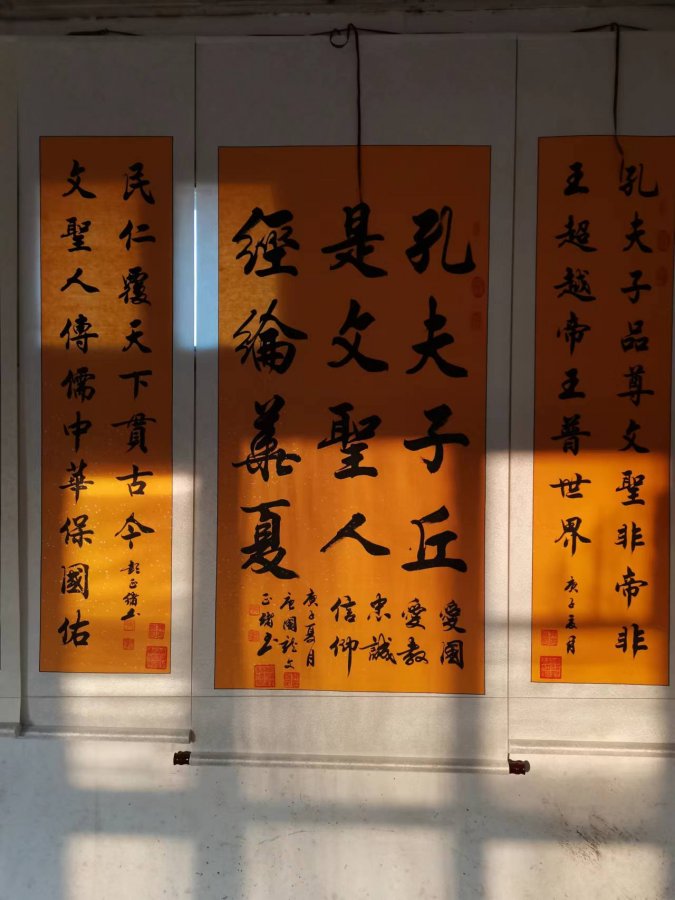 孔夫子品尊文聖非帝非
王超越帝王普世界
庚子夏月
孔夫子丘
是文聖人
經綸華夏
愛國
愛教
忠誠
信仰
庚子夏月
國龍文
正書
文聖人傳儒中華保國佑
民仁覆天下貫古今
彭正书